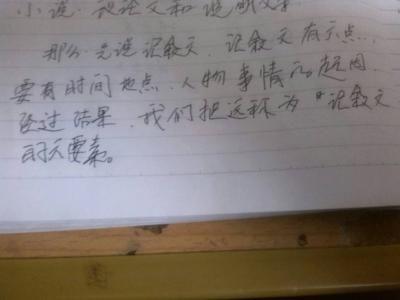 小说、议论文和说明文
那么先说记叙文、记叙文有六点、
要有时间地点、人物事情的起因
经过结果、我们把这称为“记叙文
的六要素。